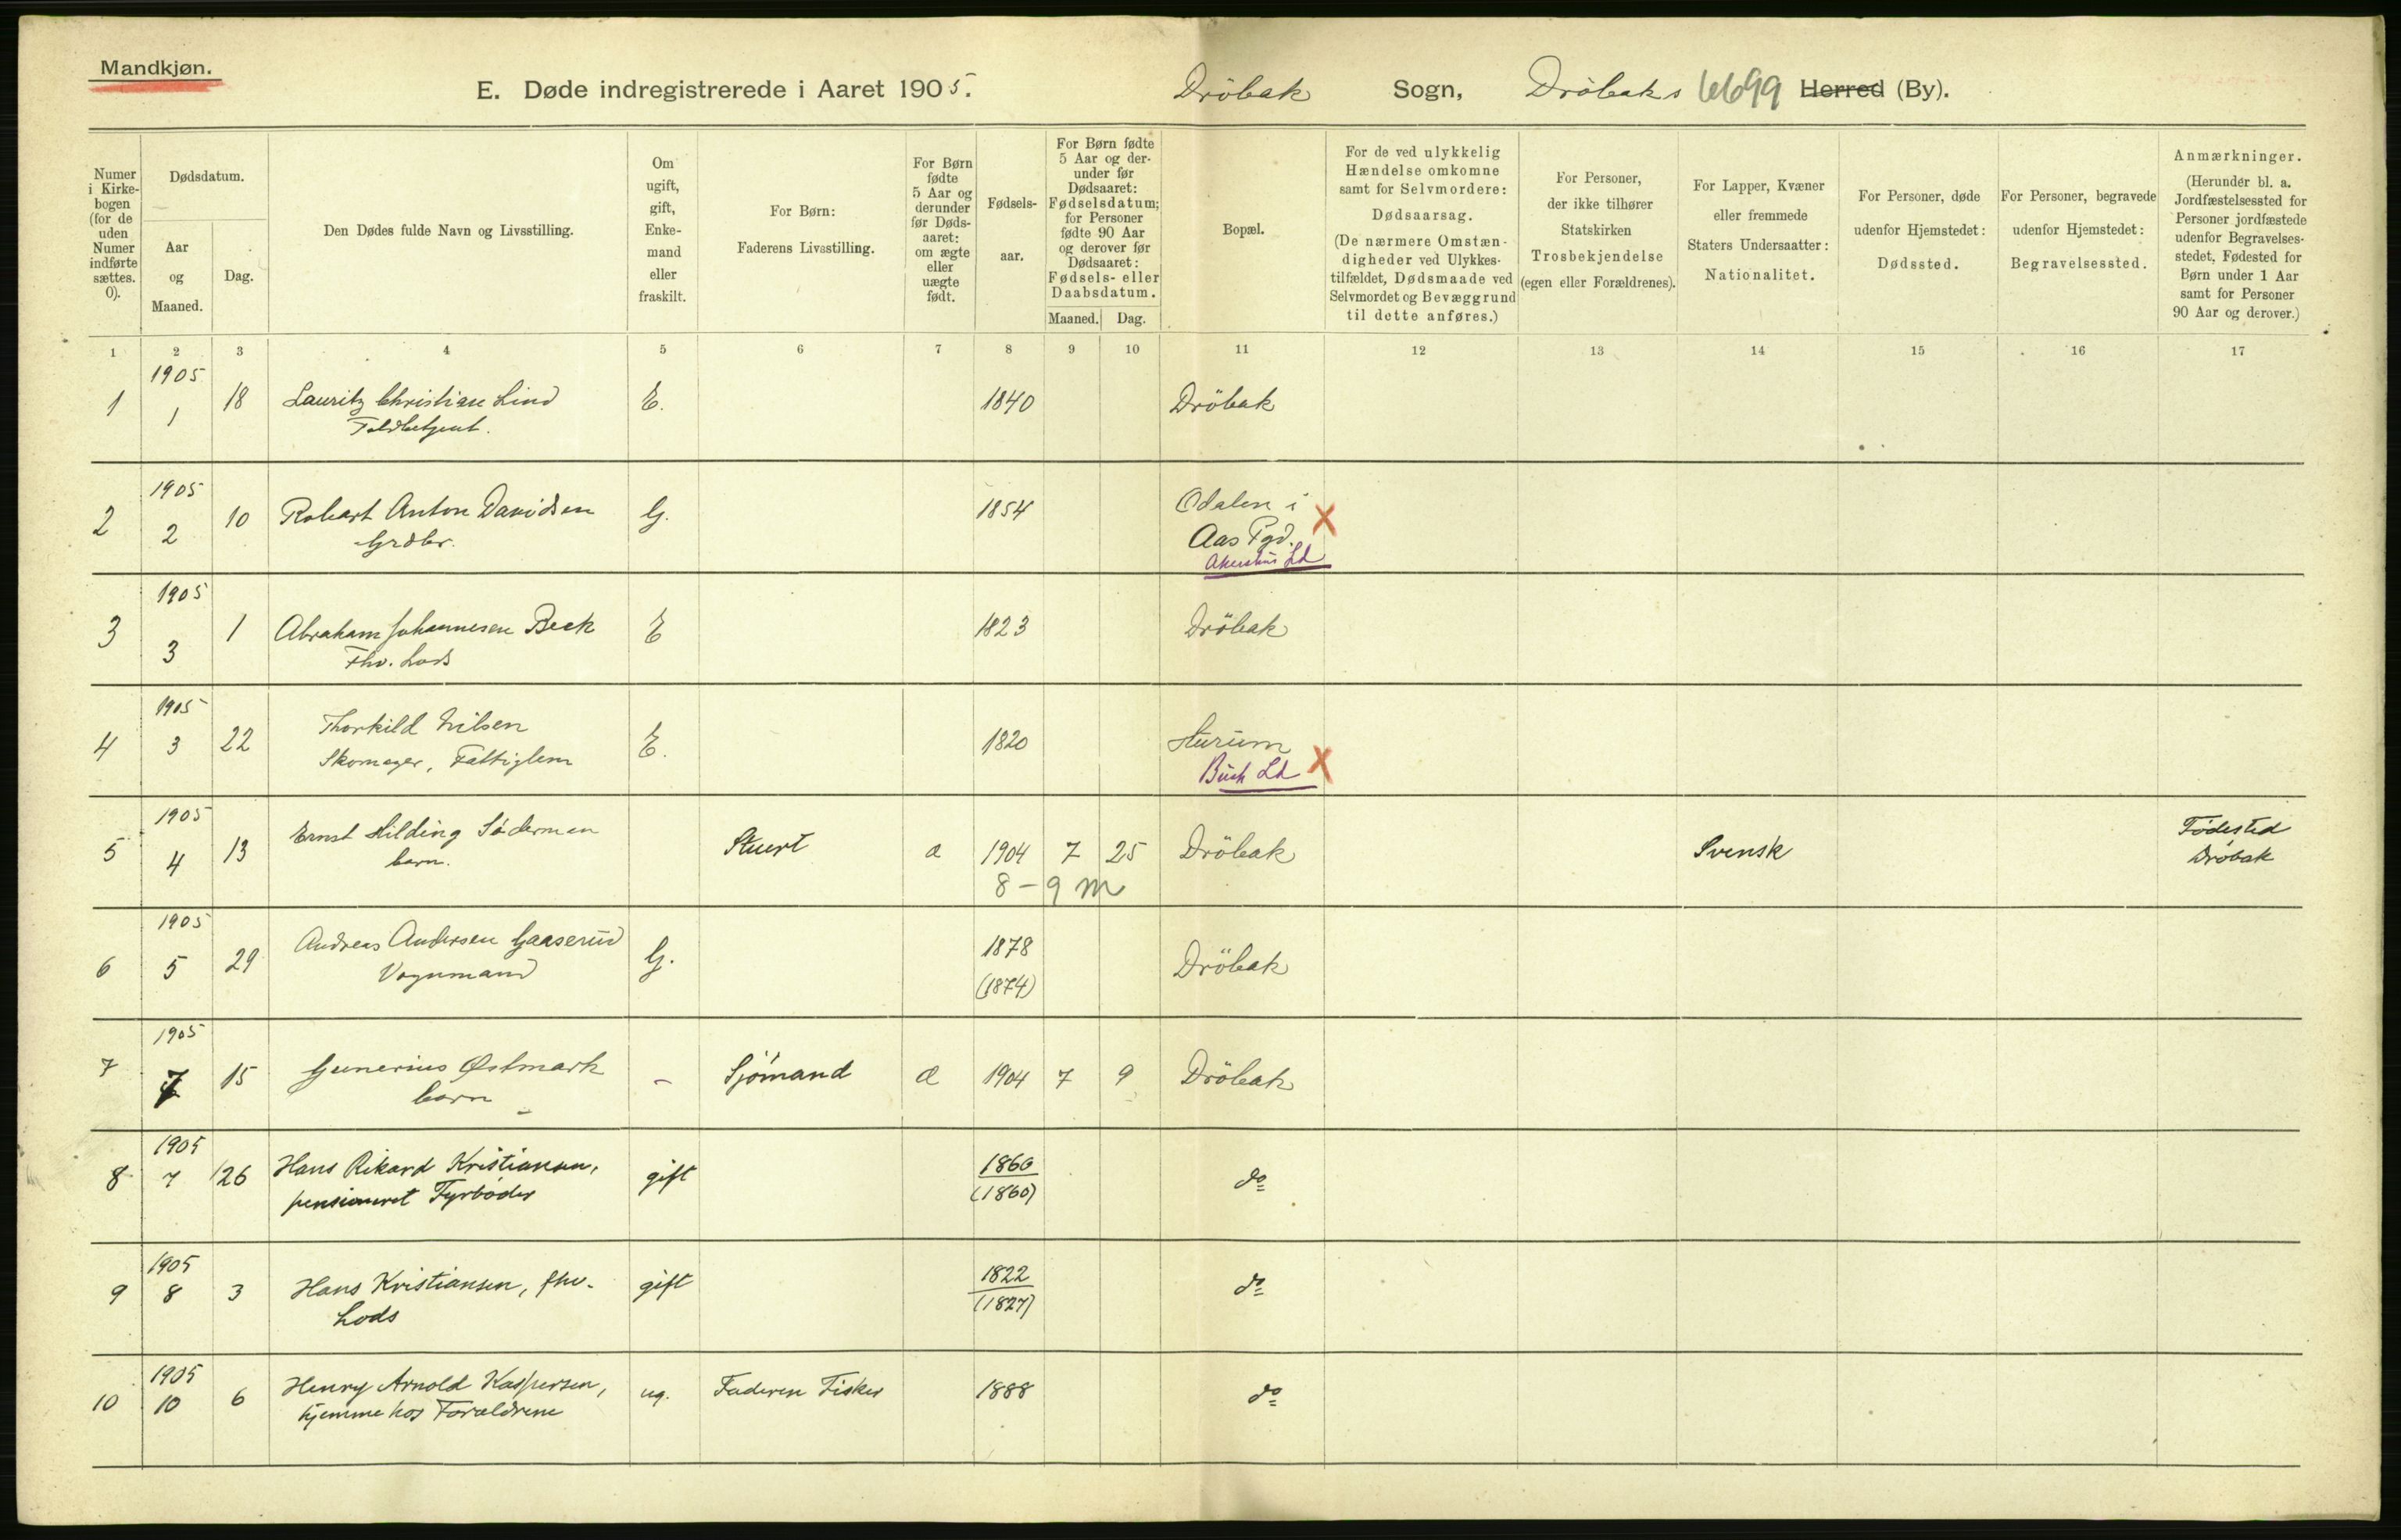 Mandkjøn.
E. Døde indregistrerede i Aaret 1905. Dröbak Sogn, Dröbaks 6699 Herred (By).
Numer i Kirkebogen (for de uden Numer indførte sættes. 0).
Dødsdatum.
Aar og Maaned.
Dag.
Den Dødes fulde Navn og Livsstilling.
Om ugift, gift, Enkemand eller fraskilt.
For Børn:
Faderens Livsstilling.
For Børn fødte 5 Aar og derunder før Dødsaaret: om ægte eller uægte født.
Fødselsaar.
For Børn fødte 5 Aar og derunder før Dødsaaret: Fødselsdatum; for Personer fødte 90 Aar og derover før Dødsaaret: Fødsels- eller Daabsdatum.
Maaned. Dag.
Bopæl.
For de ved ulykkelig Hændelse omkomne samt for Selvmordere:
Dødsaarsag.
(De nærmere Omstændigheder ved Ulykkestilfældet, Dødsmaade ved Selvmordet og Bevæggrund til dette anføres.)
For Personer, der ikke tilhører Statskirken
Trosbekjendelse
(egen eller Forældrenes).
For Lapper, Kvæner eller fremmede Staters Undersaatter:
Nationalitet.
For Personer, døde udenfor Hjemstedet:
Dødssted.
For Personer, begravede udenfor Hjemstedet:
Begravelsessted.
Anmærkninger.
(Herunder bl. a. Jordfæstelsessted for Personer jordfæstede udenfor Begravelsesstedet, Fødested for Børn under 1 Aar samt for Personer 90 Aar og derover.)
1 2 3 4 5 6 7 8 9 10 11 12 13 14 15 16 17
1905
1 1 18 Lauritz Christian Lind E. 1840 Dröbak
Toldbetjent.
1905
2 2 10 Robert Anton Davidsen G. 1854 Odalen i
Grdbr. Aas Pgd. X
Akershus Ld
1905
3 3 1 Abraham Johannesen Beck E 1823 Dröbak
Fhv. Lods
1905
4 3 22 Thorkild Nilsen E. 1820 Hurum
Skomager, Fattiglem Busk Ld X
1905
5 4 13 Ernst Hilding Söderman Stuert æ 1904 7 25 Dröbak Svensk Födested
barn. 8-9 m Dröbak
1905
6 5 29 Andreas Andersen Gaaserud G. 1878 Dröbak
Vognmand (1874)
1905
7 7 15 Gunerius Østmark - Sjömand æ 1904 7 9 Dröbak
barn
1905
8 7 26 Hans Rikard Kristiansen, gift 1860 do
pensioneret Fyrböder (1860)
1905
9 8 3 Hans Kristiansen, fhv. gift 1822 do
Lods (1827)
1905
10 10 6 Henry Arnold Kaspersen, ug. Faderen Fisker 1888 do
hjemme hos Forældrene